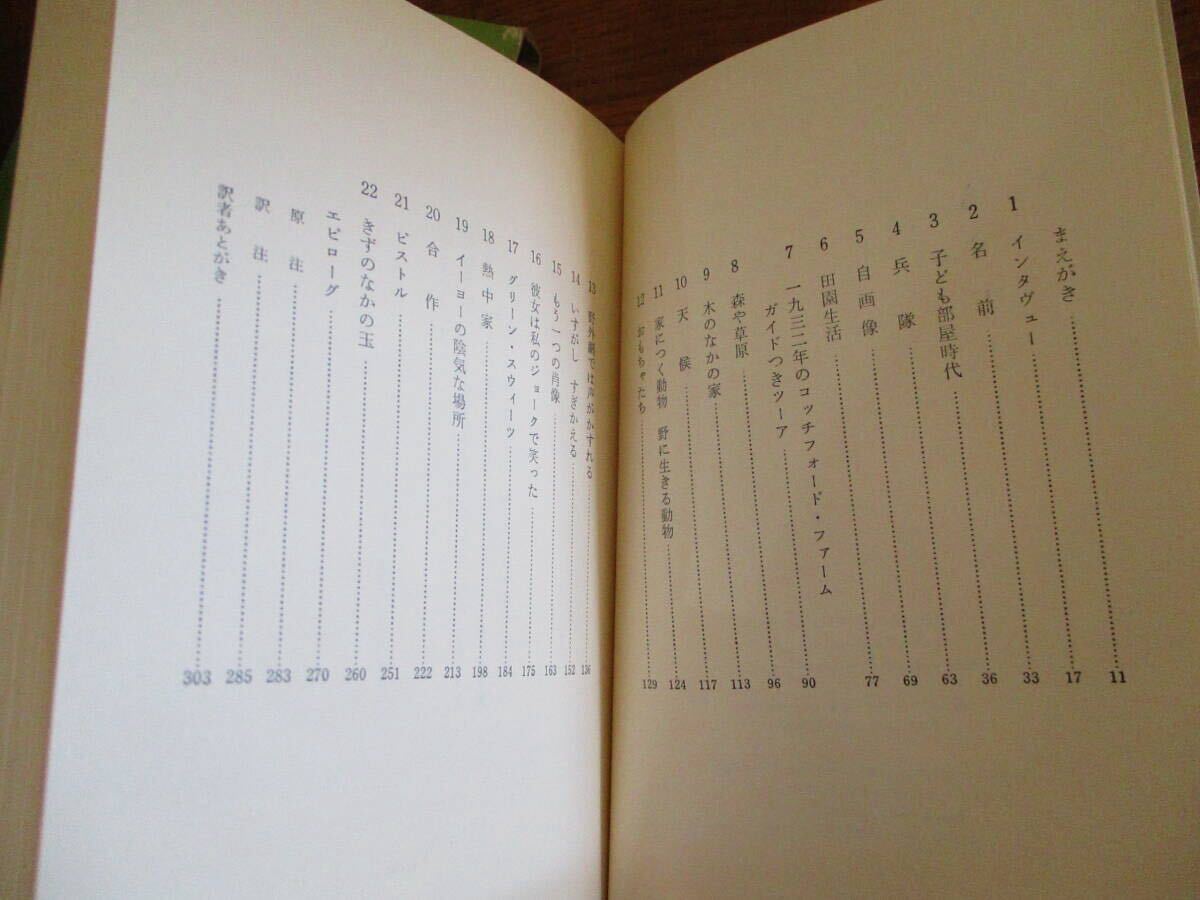 まえがき 11
1 インタヴュー 17
2 名前 33
3 子ども部屋時代 36
4 兵隊 63
5 自画像 69
6 田園生活 77
7 一九三二年のコッチフォード・ファーム
ガイドつきツーア 90
8 森や草原 96
9 木のなかの家 113
10 天候 117
11 家につく動物 野に生きる動物 124
12 おもちゃたち 129
13 野外劇では声がかすれる 136
14 いすがし すぎかえる 152
15 もう一つの肖像 163
16 彼女は私のジョークで笑った 175
17 グリーン・スウィーツ 184
18 熱中家 198
19 イーヨーの陰気な場所 213
20 合作 222
21 ピストル 251
22 きずのなかの玉 260
エピローグ 270
原注 283
訳注 285
訳者あとがき 303